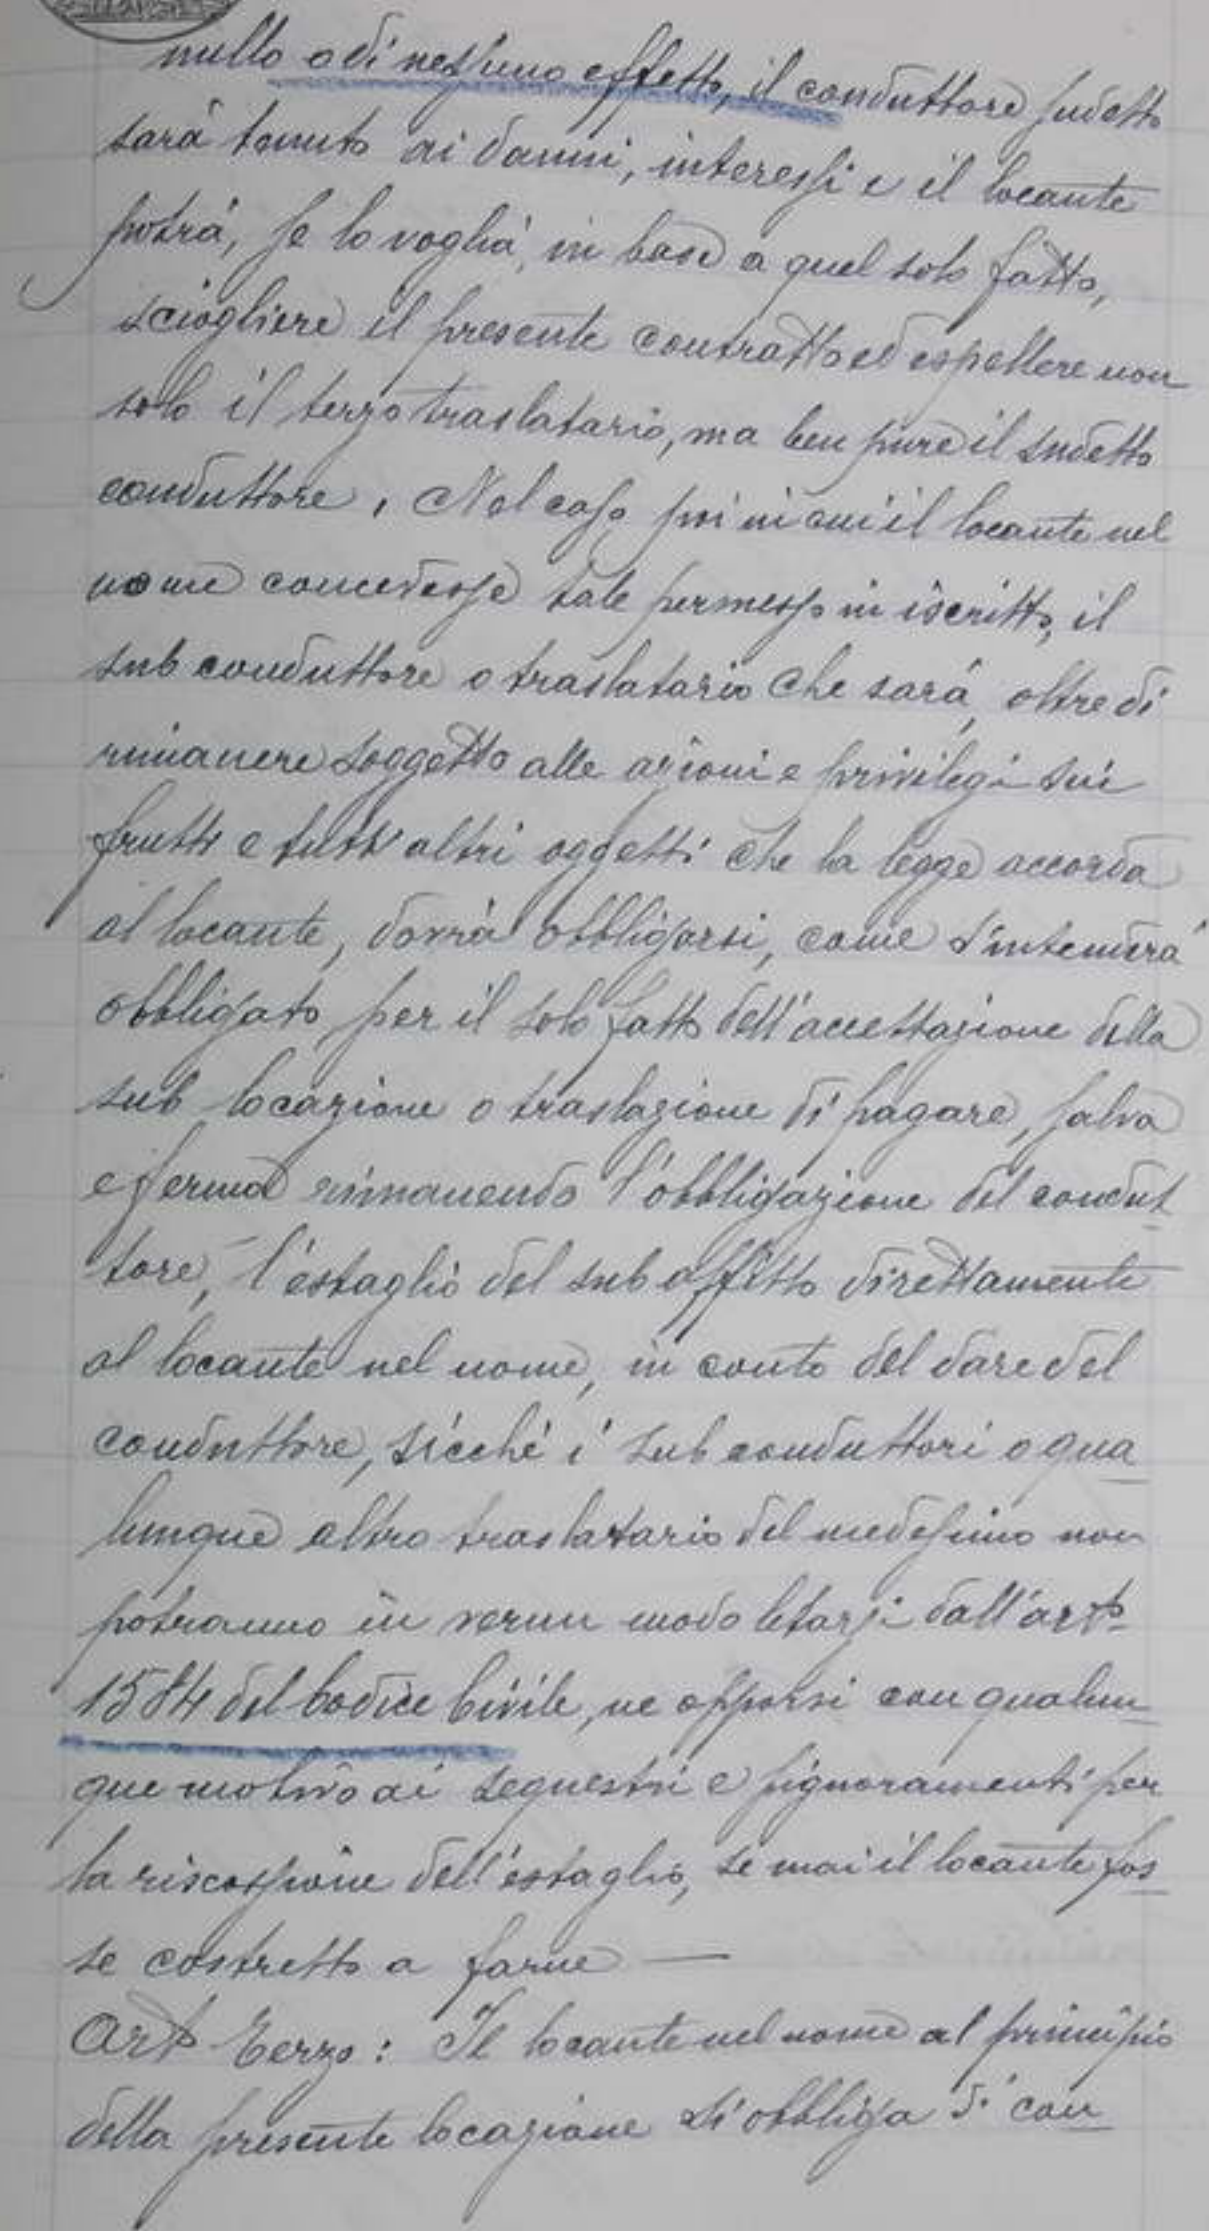 nullo o di nessuno effetto, il conduttore sudetto
sarà tenuto ai danni, interessi e il locante
potrà, se lo voglia, in base a quel solo fatto,
sciogliere il presente contratto ed espellere non
solo il terzo traslatario, ma ben pure il sudetto
conduttore. Nel caso poi in cui il locante nel
nome concedesse tale permesso in iscritto, il
sub conduttore o traslatario che sarà, oltre di
rimanere soggetto alle azioni e privilegi sui
frutti e tutti altri oggetti che la legge accorda
al locante, dovrà obbligarsi, come s'intenderà
obbligato per il solo fatto dell'accettazione della
sub locazione o traslazione di pagare, salva
e ferma rimanendo l'obbligazione del condut
tore, l'estaglio del sub affitto direttamente
al locante nel nome, in conto del dare del
conduttore, sicché i sub conduttori o qua
lunque altro traslatario del medesimo non
potranno in verun modo dall'arto
1584 del Codice Civile, ne opporsi con qualun
que motivo ai sequestri e pignoramenti per
la riscossione dell'estaglio, se mai il locante fos
se costretto a farne —
Art Terzo: Il locante nel nome al principio
della presente locazione si obbliga di con